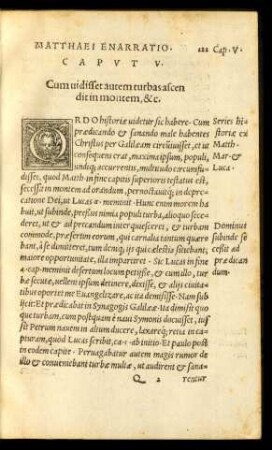 MATTHAEI ENARRATIO. 122 Cap. V.
CAPVT V.
Cum uidisset autem turbas ascen
dit in montem, &c.
ORDO historiæ uidetur sic habere. Cum
prædicando & sanando male habentes
Christus per Galilæam circūiuisset, et ut
consequens erat, maxima ipsum, populi,
undiq; accurrentis, multitudo circumfu-
disset, quod Matth. in fine capitis superioris testatus est,
secessit in montem ad orandum, pernoctauitq; in depre-
catione Dei, ut Lucas meminit. Hunc enim morem ha-
buit, ut subinde, pressus nimia populi turba, aliquo secede-
ret, ut & ad precandum interquiesceret, & turbam
commode, præsertim eorum, qui carnalia tantum quære-
bant, à se dimitteret, tum denuq; ijs qui cælestia sitiebant,
maiore opportunitate, illa impartiret. Sic Lucas in fine
4. cap. meminit desertum locum petijsse, & cum illo, tur-
bæ secutæ, nollent ipsum detinere, dixisse, & alijs ciuita-
tibus oportet me Euangelizare, ac ita demisisse. Nam sub-
ijcit: Et prædicabat in Synagogis Galilææ. Ita dimisit quo
que turbam, cum postquam è naui Symonis docuisset, iuss
sit Petrum nauem in altum ducere, laxareq; retia in ca-
pturam, quod Lucas scribit, ca. 5. ab initio. Et paulo post
in eodem capite. Peruagabatur autem magis rumor de
illo & conueniebant turbæ multæ, ut audirent & sana-
Q 2 rentur
Series hi
storiæ ex
Matth.
Mar. &
Luca.
Dominus
subinde se
cessit ad
præcan
dum.